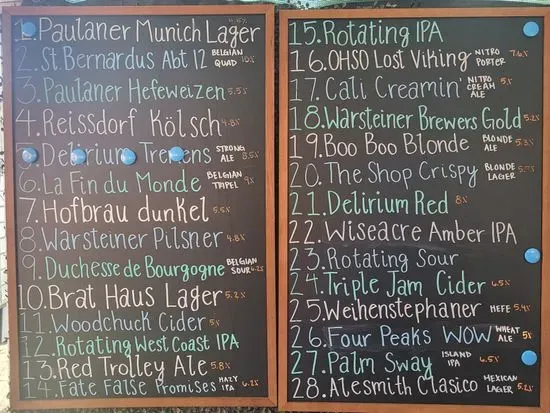 1. Paulaner Munich Lager
2. St Bernardus Abt 12 BELGIAN QUAD 10%
3. Paulaner Hefeweizen 5.5%
4. Reissdorf Kölsch 4.8%
5. Delirium Tremens STRONG ALE 8.5%
6. La Fin du Monde BELGIAN TRIPEL 9%
7. Hofbrau dunkel 5.5%
8. Warsteiner Pilsner 4.8%
9. Duchesse de Bourgogne BELGIAN SOUR 6.2%
10. Brat Haus Lager 5.2%
11. Woodchuck Cider 5%
12. Rotating West Coast IPA
13. Red Trolley Ale 5.8%
14. Fate False Promises HAZY IPA 6.2%
15. Rotating IPA
16. OHSO Lost Viking NITRO PORTER 7.6%
17. Cali Creamin' NITRO CREAM ALE 5%
18. Warsteiner Brewers Gold 5.2%
19. Boo Boo Blonde BLONDE ALE 5.3%
20. The Shop Crispy BLONDE LAGER
21. Delirium Red 8%
22. Wiseacre Amber IPA
23. Rotating Sour
24. Triple Jam Cider 6.5%
25. Weihenstephaner HEFE 5.4%
26. Four Peaks WOW WHEAT ALE 5%
27. Palm Sway ISLAND IPA 6.5%
28. Alesmith Clasico MEXICAN LAGER 5.2%